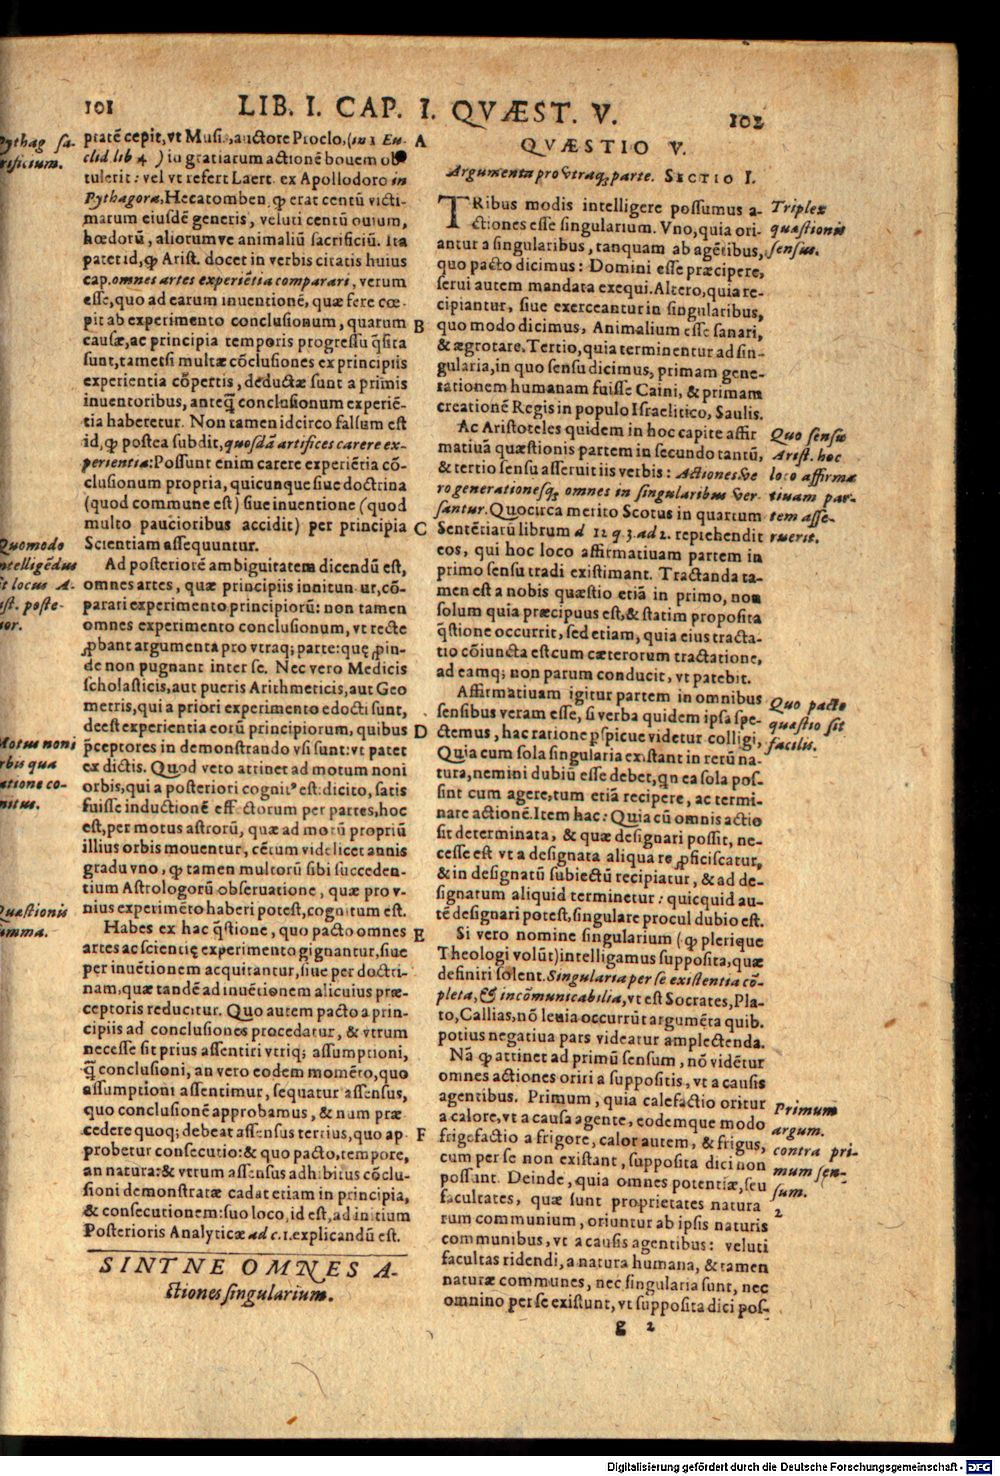 101
LIB. I. CAP. I. QVÆST. V.
102
pratē cepit, vt Musis, auctore Proclo, (in 1 Eu-
clid lib 4 ) in gratiarum actionē bouem ob
tulerit: vel vt refert Laert. ex Apollodoro in
Pythagora, Hecatomben, ꝙ erat centū victi-
marum eiusdē generis, veluti centū ouium,
hœdorū, aliorumve animaliū sacrificiū. Ita
patet id, ꝙ Arist. docet in verbis citatis huius
cap. omnes artes experiētia comparari, verum
esse, quo ad earum inuentionē, quæ fere cœ-
pit ab experimento conclusionum, quarum
causæ, ac principia temporis progressu q̄sita
sunt, tametsi multæ cōclusiones ex principiis
experientia cōpertis, deductæ sunt a primis
inuentoribus, anteq̄ conclusionum experiē-
tia haberetur. Non tamen idcirco falsum est
id, ꝙ postea subdit, quosdā artifices carere ex-
perientia: Possunt enim carere experiētia cō-
clusionum propria, quicunque siue doctrina
(quod commune est) siue inuentione (quod
multo paucioribus accidit) per principia
Scientiam assequuntur.
Ad posteriorē ambiguitatem dicendū est,
omnes artes, quæ principiis innitun ur, cō-
parari experimento principiorū: non tamen
omnes experimento conclusionum, vt recte
ꝓbant argumenta pro vtraq; parte: quę ꝓin-
de non pugnant inter se. Nec vero Medicis
scholasticis, aut pueris Arithmeticis, aut Geo
metris, qui a priori experimento edocti sunt,
deest experientia eorū principiorum, quibus
p̄ceptores in demonstrando vsi sunt: vt patet
ex dictis. Quod vero attinet ad motum noni
orbis, qui a posteriori cognitꝰ est: dicito, satis
fuisse inductionē eff ctorum per partes, hoc
est, per motus astrorū, quæ ad motū propriū
illius orbis mouentur, cētum videlicet annis
gradu vno, ꝙ tamen multorū sibi succeden-
tium Astrologorū obseruatione, quæ pro v-
nius experimēto haberi potest, cognitum est.
Habes ex hac q̄stione, quo pacto omnes
artes ac scientię experimento gignantur, siue
per inuētionem acquirantur, siue per doctri-
nam, quæ tandē ad inuētionem alicuius præ-
ceptoris reducitur. Quo autem pacto a prin-
cipiis ad conclusiones procedatur, & vtrum
necesse sit prius assentiri vtriq; assumptioni,
q̄ conclusioni, an vero eodem momēto, quo
assumptioni assentimur, sequatur assensus,
quo conclusionē approbamus, & num præ
cedere quoq; debeat assensus tertius, quo ap
probetur consecutio: & quo pacto, tempore,
an natura: & vtrum assensus adhibitus cōclu-
sioni demonstratæ cadat etiam in principia,
& consecutionem: suo loco, id est, ad initium
Posterioris Analyticæ ad c. 1. explicandū est.
SINTNE OMNES A-
ctiones singularium.
Pythag sa-
rificium.
Quomodo
ntelligēdus
it locus A-
ist. poste-
ior.
Motus noni
rbis qua
atione co-
nitus.
Quæstionis
umma.
A
B
C
D
E
F
QVÆSTIO V.
Argumenta pro vtraq; parte. SECTIO I.
TRibus modis intelligere possumus a-
ctiones esse singularium. Vno, quia ori-
antur a singularibus, tanquam ab agētibus,
quo pacto dicimus: Domini esse præcipere,
serui autem mandata exequi. Altero, quia re-
cipiantur, siue exerceantur in singularibus,
quo modo dicimus, Animalium esse sanari,
& ægrotare. Tertio, quia terminentur ad sin-
gularia, in quo sensu dicimus, primam gene-
rationem humanam fuisse Caini, & primam
creationē Regis in populo Israelitico, Saulis.
Ac Aristoteles quidem in hoc capite affir
matiuā quæstionis partem in secundo tantū,
& tertio sensu asseruit iis verbis: Actiones ve
ro generationesq; omnes in singularibus ver-
santur. Quocirca merito Scotus in quartum
Sentētiarū librum d 12 q. 3. ad 2. reprehendit
eos, qui hoc loco affirmatiuam partem in
primo sensu tradi existimant. Tractanda ta-
men est a nobis quæstio etiā in primo, non
solum quia præcipuus est, & statim proposita
q̄stione occurrit, sed etiam, quia eius tracta-
tio cōiuncta est cum cæterorum tractatione,
ad eamq; non parum conducit, vt patebit.
Affirmatiuam igitur partem in omnibus
sensibus veram esse, si verba quidem ipsa spe-
ctemus, hac ratione ꝑspicue videtur colligi,
Quia cum sola singularia existant in rerū na-
tura, nemini dubiū esse debet, qn ea sola pos-
sint cum agere, tum etiā recipere, ac termi-
nare actionē. Item hac: Quia cū omnis actio
sit determinata, & quæ designari possit, ne-
cesse est vt a designata aliqua re ꝓficiscatur,
& in designatū subiectū recipiatur, & ad de-
signatum aliquid terminetur: quicquid au-
tē designari potest, singulare procul dubio est.
Si vero nomine singularium (ꝙ plerique
Theologi volūt) intelligamus supposita, quæ
definiri solent. Singularia per se existentia cō-
pleta, & incōmunicabilia, vt est Socrates, Pla-
to, Callias, nō leuia occurrūt argumēta quib.
potius negatiua pars videatur amplectenda.
Nā ꝙ attinet ad primū sensum, nō vidētur
omnes actiones oriri a suppositis, vt a causis
agentibus. Primum, quia calefactio oritur
a calore, vt a causa agente, eodemque modo
frigefactio a frigore, calor autem, & frigus,
cum per se non existant, supposita dici non
possunt. Deinde, quia omnes potentiæ, seu
facultates, quæ sunt proprietates natura
rum communium, oriuntur ab ipsis naturis
communibus, vt a causis agentibus: veluti
facultas ridendi, a natura humana, & tamen
naturæ communes, nec singularia sunt, nec
omnino per se existunt, vt supposita dici pos-
Triplex
quæstionis
sensus.
Quo sensu
Arist. hoc
loco affirma
tiuam par-
tem asse-
ruerit.
Quo pacto
quæstio sit
facilis.
Primum
argum.
contra pri-
mum sen-
sum.
2
g 2
Digitalisierung gefördert durch die Deutsche Forschungsgemeinschaft - DFG